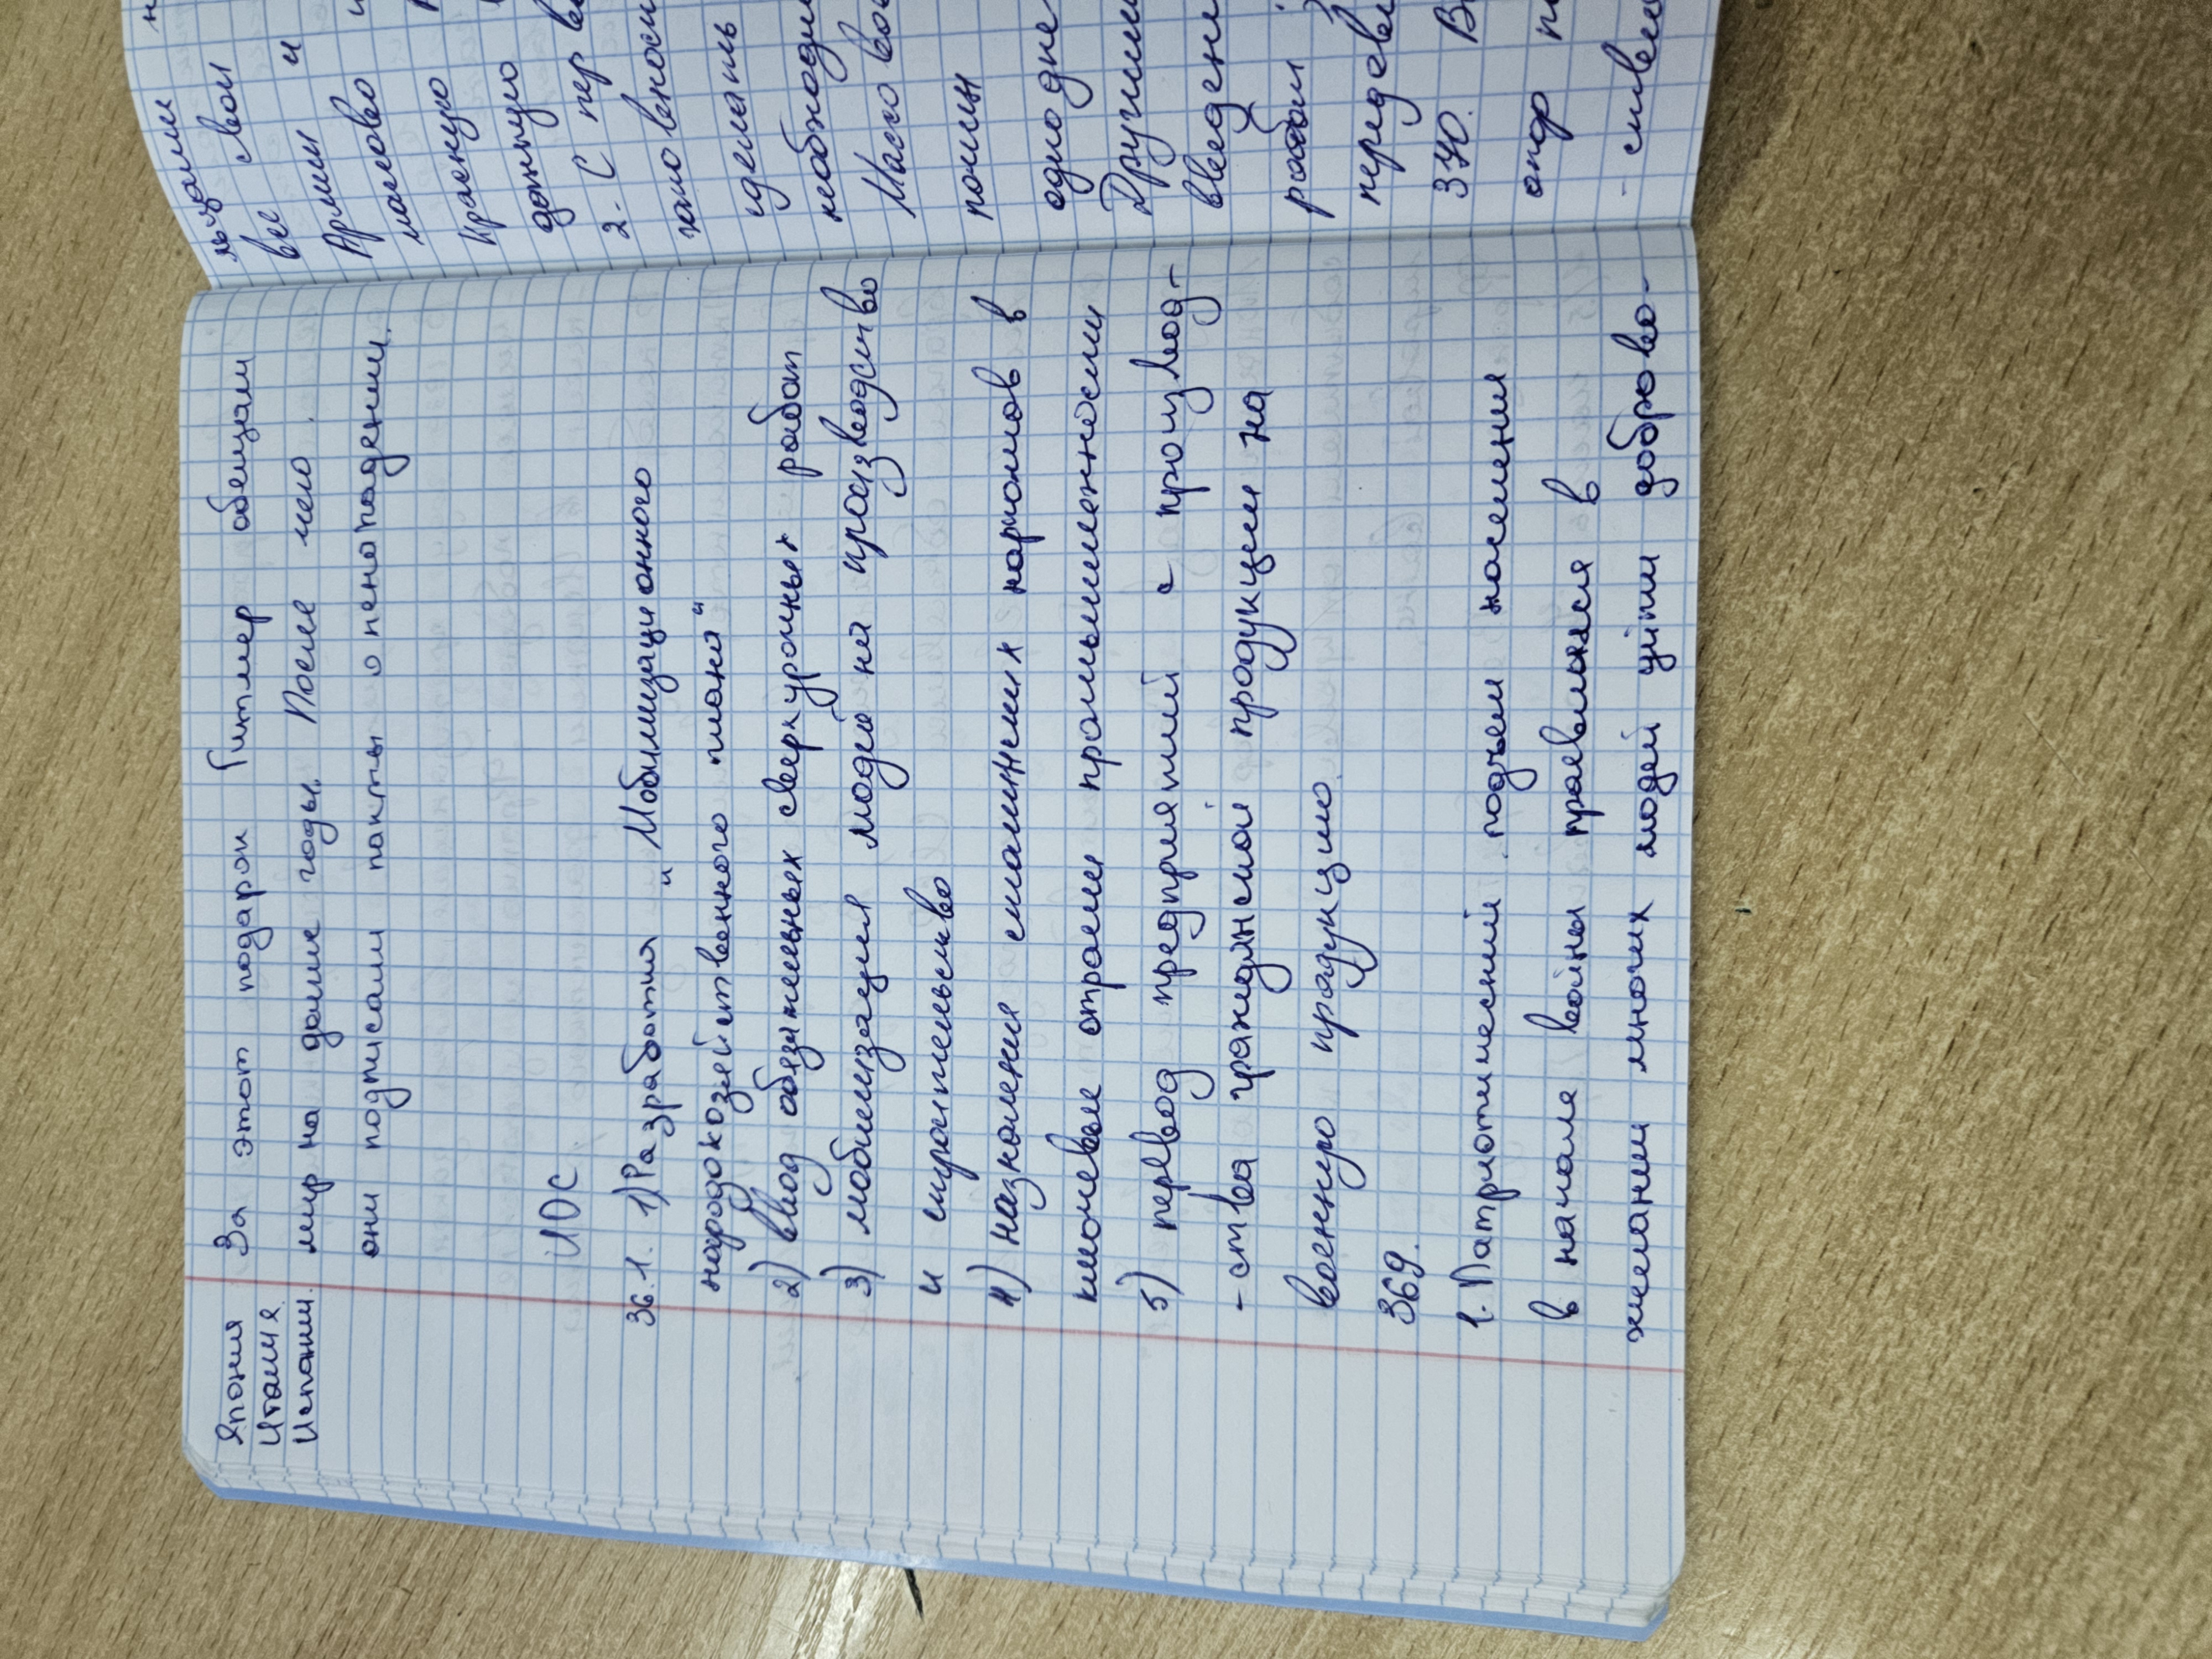 Япония За этот подарок Гитлер обещал
Италия
Испания. мир на долгие годы. После чего
они подписали пакты о ненападении.
ИОС
36.1. 1) Разработка "Мобилизационного
народохозяйственного плана"
2) ввод обязательных сверхурочных работ
3) мобилизация людей на производство
и строительство
4) назначения сталинских наркомов в
ключевые отрасли промышленности
5) перевод предприятий с производ-
- ства гражданской продукции на
военную продукцию.
369.
1. Патриотический подъем населения
в начале войны проявлялся в
желании многих людей уйти доброво-
льцами
все свои
Армии и
массово
Красную
данную
2. С пер
сделать
необходим
Массово
почин
одно дне
Движени
введени
работ
передов
370. В
отор